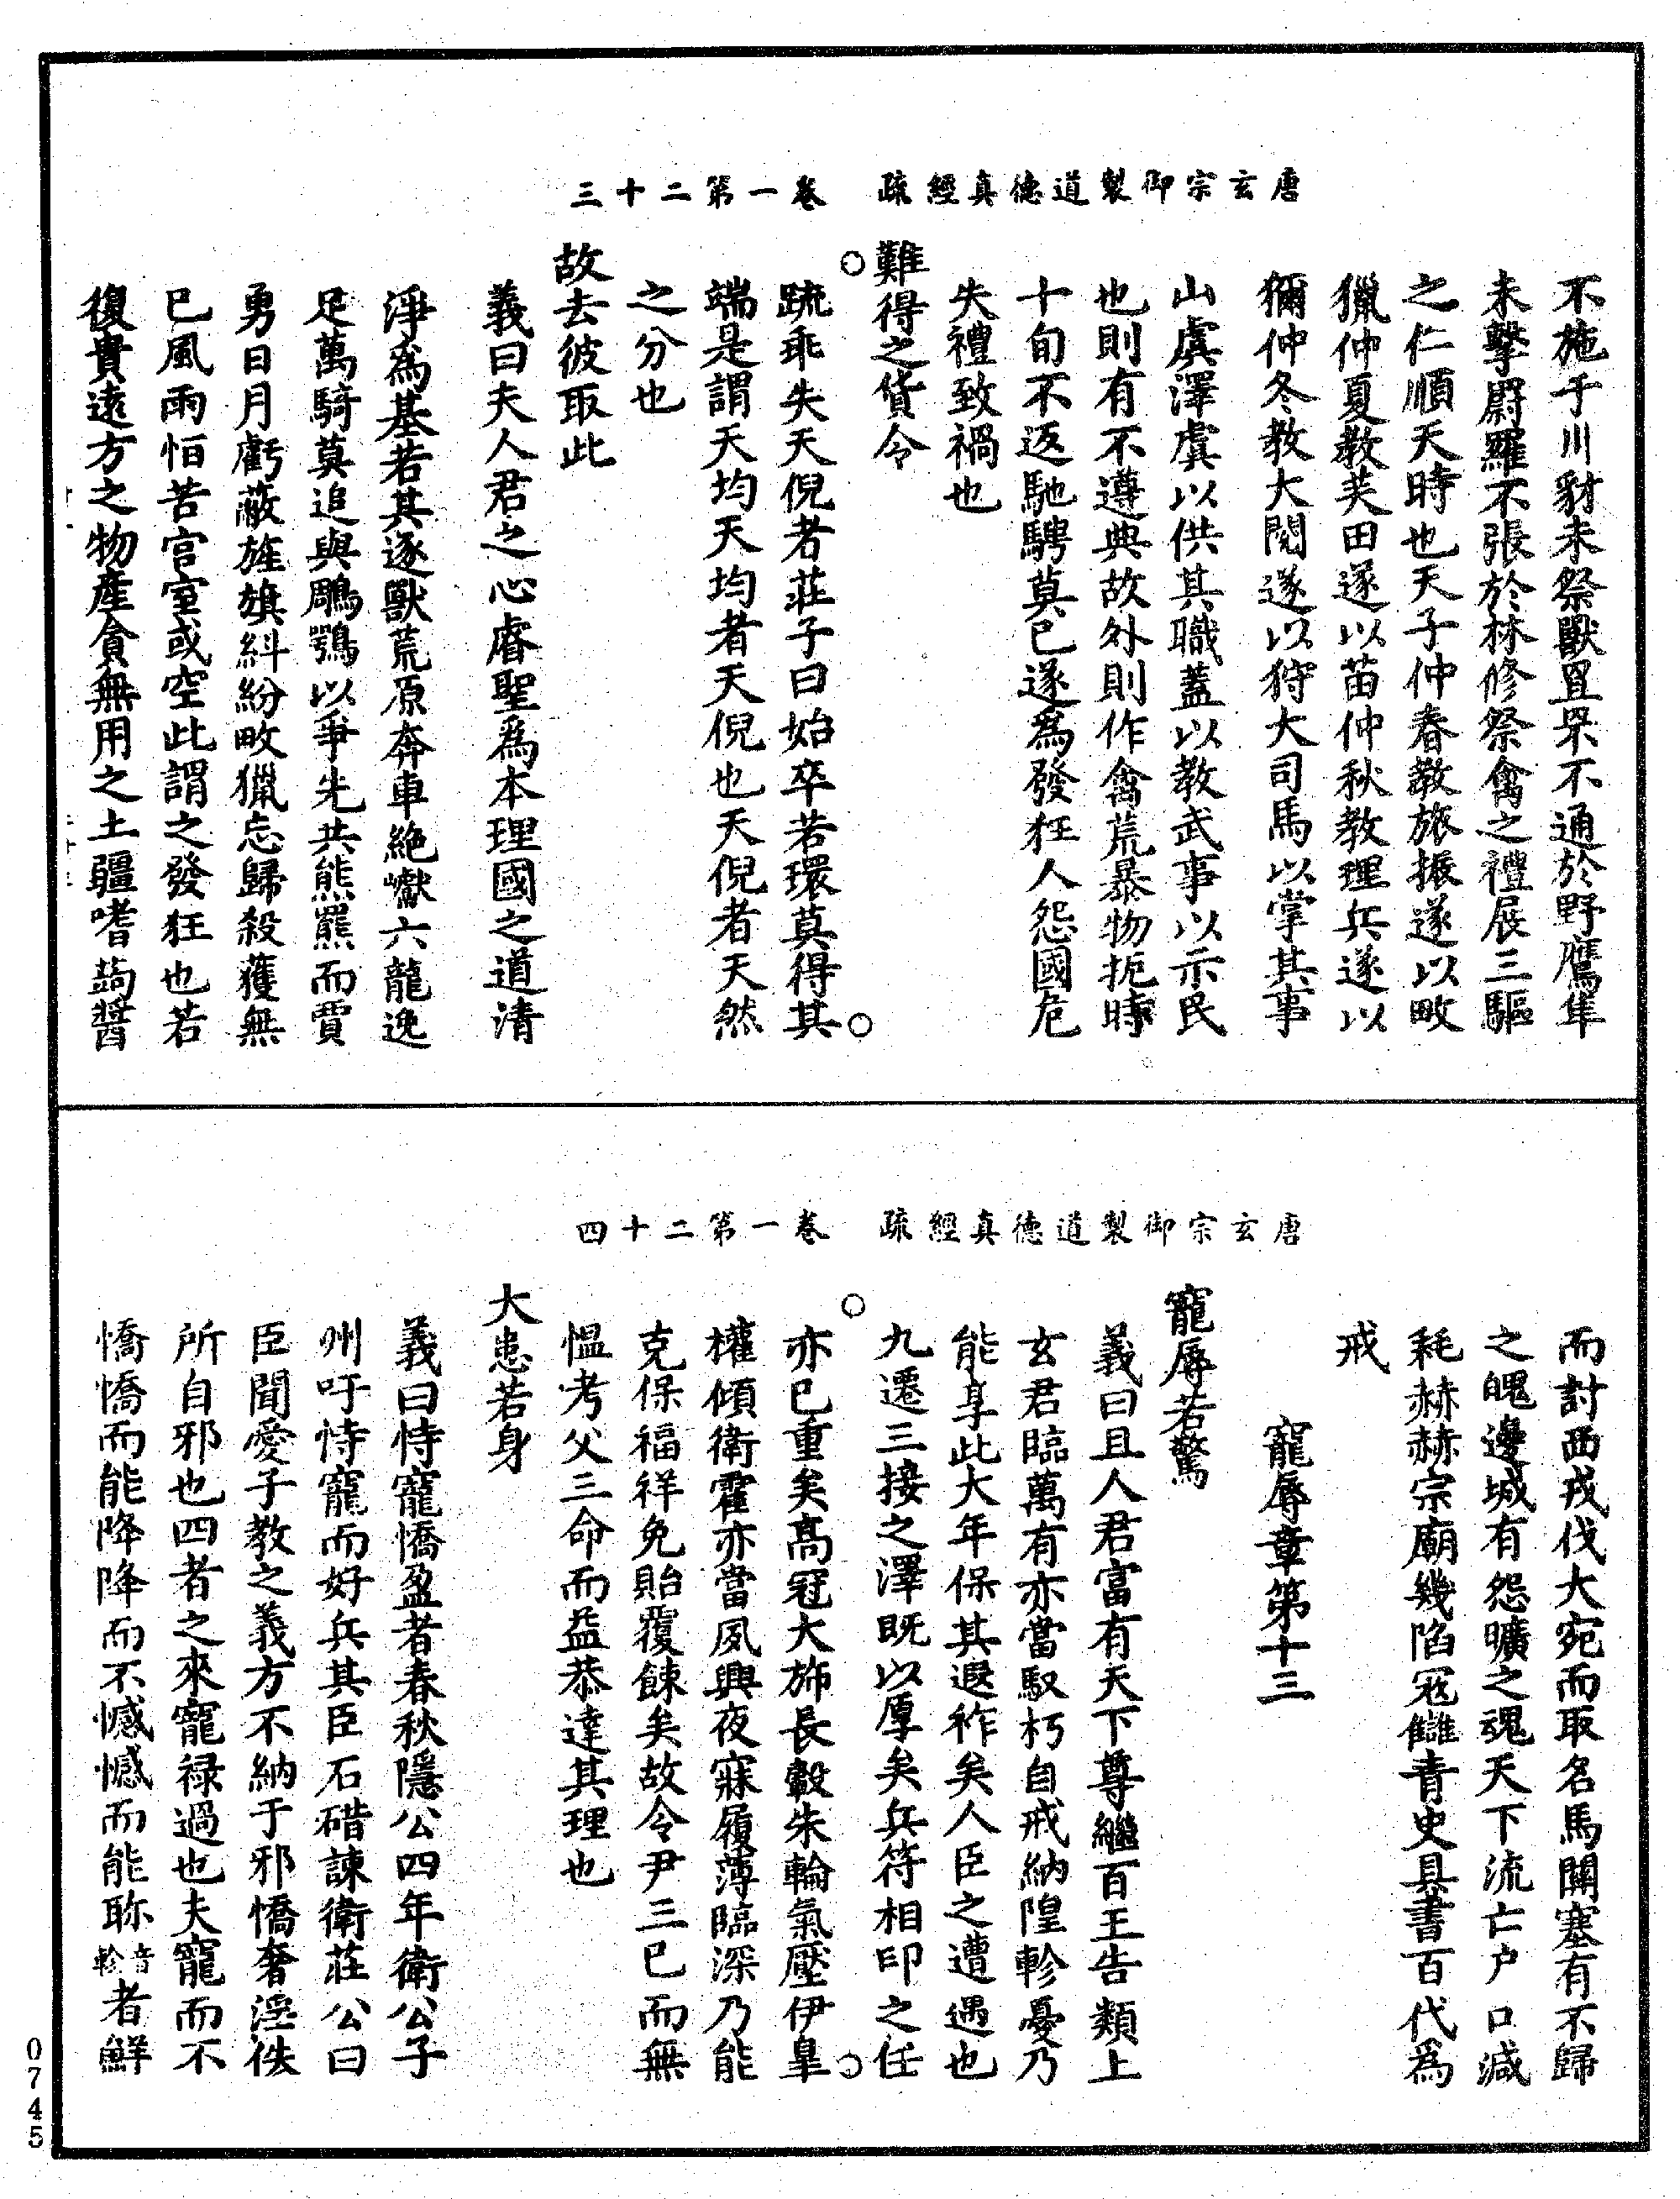 唐玄宗御製道德真經疏　卷一第二十三
不施于川豺未祭獸罝罘不通於野鷹隼
未擊罻羅不張於林修祭禽之禮展三驅
之仁順天時也天子仲春教旅振遂以畋
獵仲夏教茇田遂以苗仲秋教理兵遂以
獮仲冬教大閱遂以狩大司馬以掌其事
山虞澤虞以供其職蓋以教武事以示民
也則有不遵典故外則作禽荒暴物扼時
十旬不返馳騁莫已遂為發狂人怨國危
失禮致禍也
難得之貨令
疏乖失天倪者莊子曰始卒若環莫得其
端是謂天均天均者天倪也天倪者天然
之分也
故去彼取此
義曰夫人君之心睿聖為本理國之道清
淨為基若其逐獸荒原奔車絶巘六龍逸
足萬騎莫追與鵰鶚以爭先共熊羆而賈
勇日月虧蔽旌旗糾紛畋獵忘歸殺獲無
已風雨怕苦宫室或空此謂之發狂也若
復貴遠方之物產貪無用之土疆嗜蒟醬
唐玄宗御製道德真經疏　卷一第二十四
而討西戎伐大宛而取名馬關塞有不歸
之魄邊城有怨曠之魂天下流亡户口減
耗赫赫宗廟幾陷寇讎青史具書百代為
戒
寵辱章第十三
寵辱若驚
義曰且人君富有天下尊繼百王告類上
玄君臨萬有亦當馭朽自戒納隍軫憂乃
能享此大年保其遐祚矣人臣之遭遇也
九遷三接之澤既以厚矣兵符相印之任
亦已重矣高冠大斾長轂朱輪氣壓伊臯
權傾衛霍亦當夙興夜寐履薄臨深乃能
克保福祥免貽覆餗矣故令尹三已而無
愠考父三命而益恭達其理也
大患若身
義曰恃寵憍盈者春秋隱公四年衛公子
州吁恃寵而好兵其臣石碏諫衛莊公曰
臣聞愛子教之義方不納于邪憍奢淫佚
所自邪也四者之來寵禄過也夫寵而不
憍憍而能降降而不憾憾而能眕音軫者鮮
0745